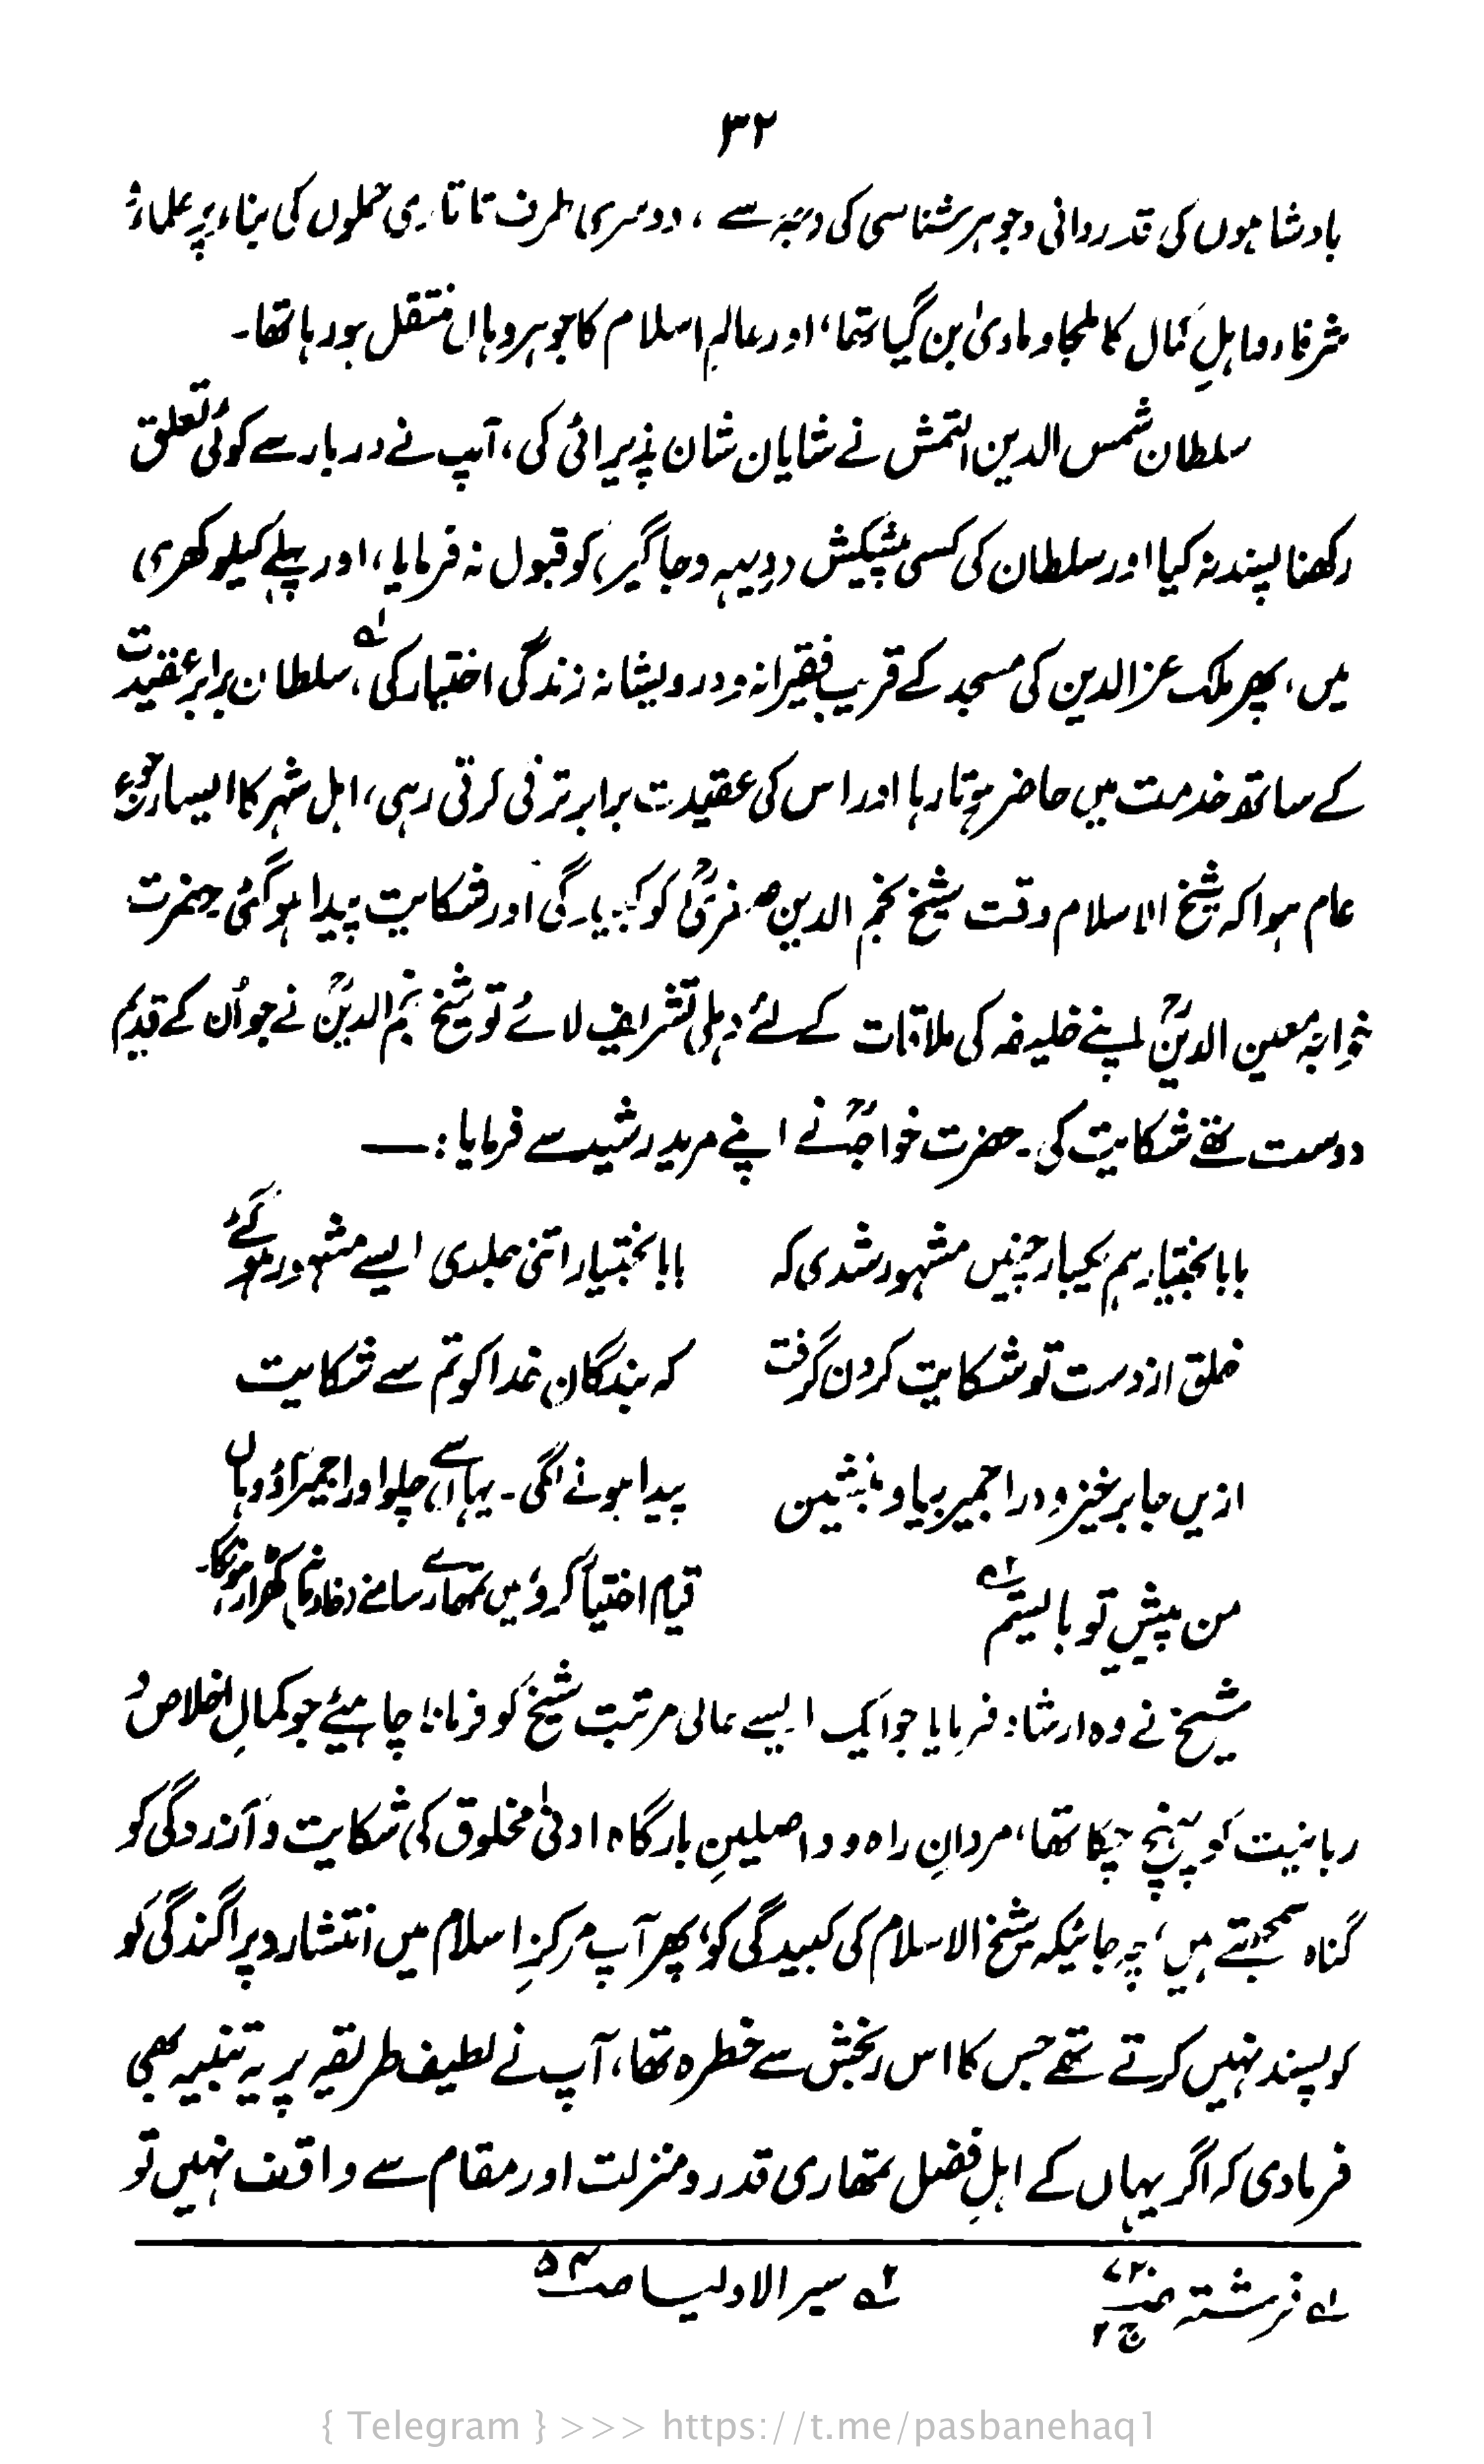 ۳۲
بادشاہوں کی قدردانی وجوہر شناسی کی وجہ سے ، دوسری طرف تاتاری حملوں کی بناء پر علماء و
شرفاء و اہلِ کمال کا ملجا و ماویٰ بن گیا تھا، اور عالمِ اسلام کا جوہر وہاں منتقل ہو رہا تھا۔
سلطان شمس الدین التمش نے شایان شان پذیرائی کی، آپ نے دربار سے کوئی تعلق
رکھنا پسند نہ کیا اور سلطان کی کسی پیشکش (دویہہ وجاگیر) کو قبول نہ فرمایا، اور پہلے کیلوکھری
میں، پھر ملک عز الدین کی مسجد کے قریب فقیرانہ و درویشانہ زندگی اختیار کی،۱ سلطان برابر عقیدت
کے ساتھ خدمت میں حاضر ہوتا رہا اور اس کی عقیدت برابر ترقی کرتی رہی، اہل شہر کا ایسا رجوع
عام ہوا کہ شیخ الاسلام وقت شیخ نجم الدین صغریٰؒ کو کبیدگی اور شکایت پیدا ہوگئی حضرت
خواجہ معین الدینؒ اپنے خلیفہ کی ملاقات کے لئے دہلی تشریف لائے تو شیخ نجم الدینؒ نے جو اُن کے قدیم
دوست تھے شکایت کی۔ حضرت خواجہؒ نے اپنے مرید رشید سے فرمایا : ــــ
بابا بختیار ہم یکبار چنیں مشہور شدی کہ    بابا بختیار اتنی جلدی ایسے مشہور ہوگئے
خلق از دست تو شکایت کردن گرفت    کہ بندگان خدا کو تم سے شکایت
ازیں جا برخیز و در اجمیر بیا و بنشین    پیدا ہونے لگی۔ یہاں سے چلو اور اجمیر آؤ وہاں
من پیشِ تو بایستم ۲    قیام اختیار کرو میں تمھارے سامنے (خادمانہ) کھڑا رہونگا۔
شیخ نے وہ ارشاد فرمایا جو ایک ایسے عالی مرتبت شیخ کو فرمانا چاہیئے جو کمالِ اخلاص و
ربانیت کو پہنچ چکا تھا، مردانِ راہ و واصلینِ بارگاہ ادنیٰ مخلوق کی شکایت و آزردگی کو
گناہ سمجھتے ہیں، چہ جائیکہ شیخ الاسلام کی کبیدگی کو، پھر آپ مرکزِ اسلام میں انتشار و پراگندگی کو
کو پسند نہیں کرتے تھے جس کا اس رنجش سے خطرہ تھا، آپ نے لطیف طریقہ پر یہ تنبیہ بھی
فرمادی کہ اگر یہاں کے اہلِ فضل تمھاری قدر و منزلت اور مقام سے واقف نہیں تو
۱ فرشتہ ص۷۲۰ ج۲    ۲ سیر الاولیا ص۵۴
{ Telegram } >>> https://t.me/pasbanehaq1